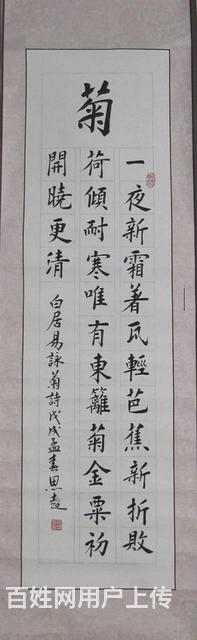 菊
一夜新霜著瓦輕芭蕉新折敗
荷傾耐寒唯有東籬菊金粟初
開曉更清
白居易詠菊詩戊戌孟春思超
百姓网用户上传